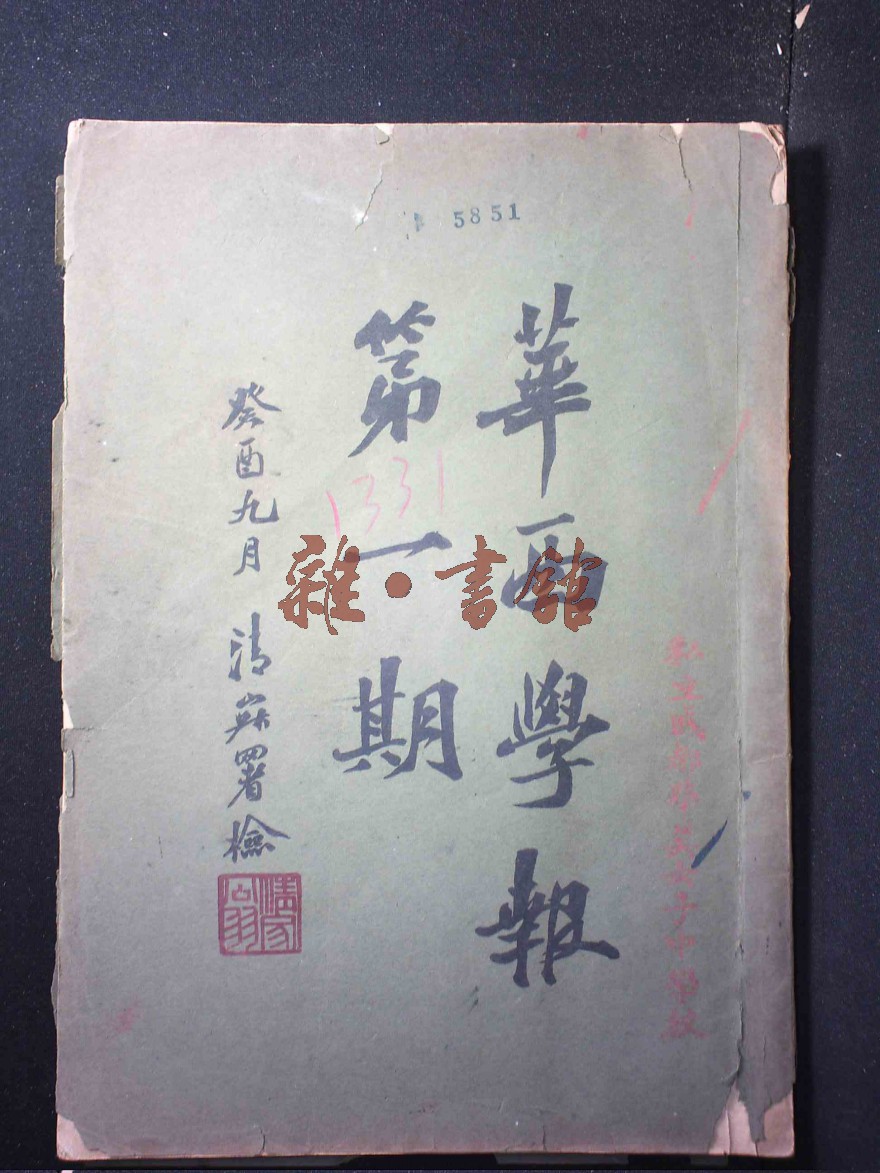 5851
私立成都華英女子中學校
華西學報
第一期
1331
癸酉九月 清寂署檢
清寂翁
雜·書館